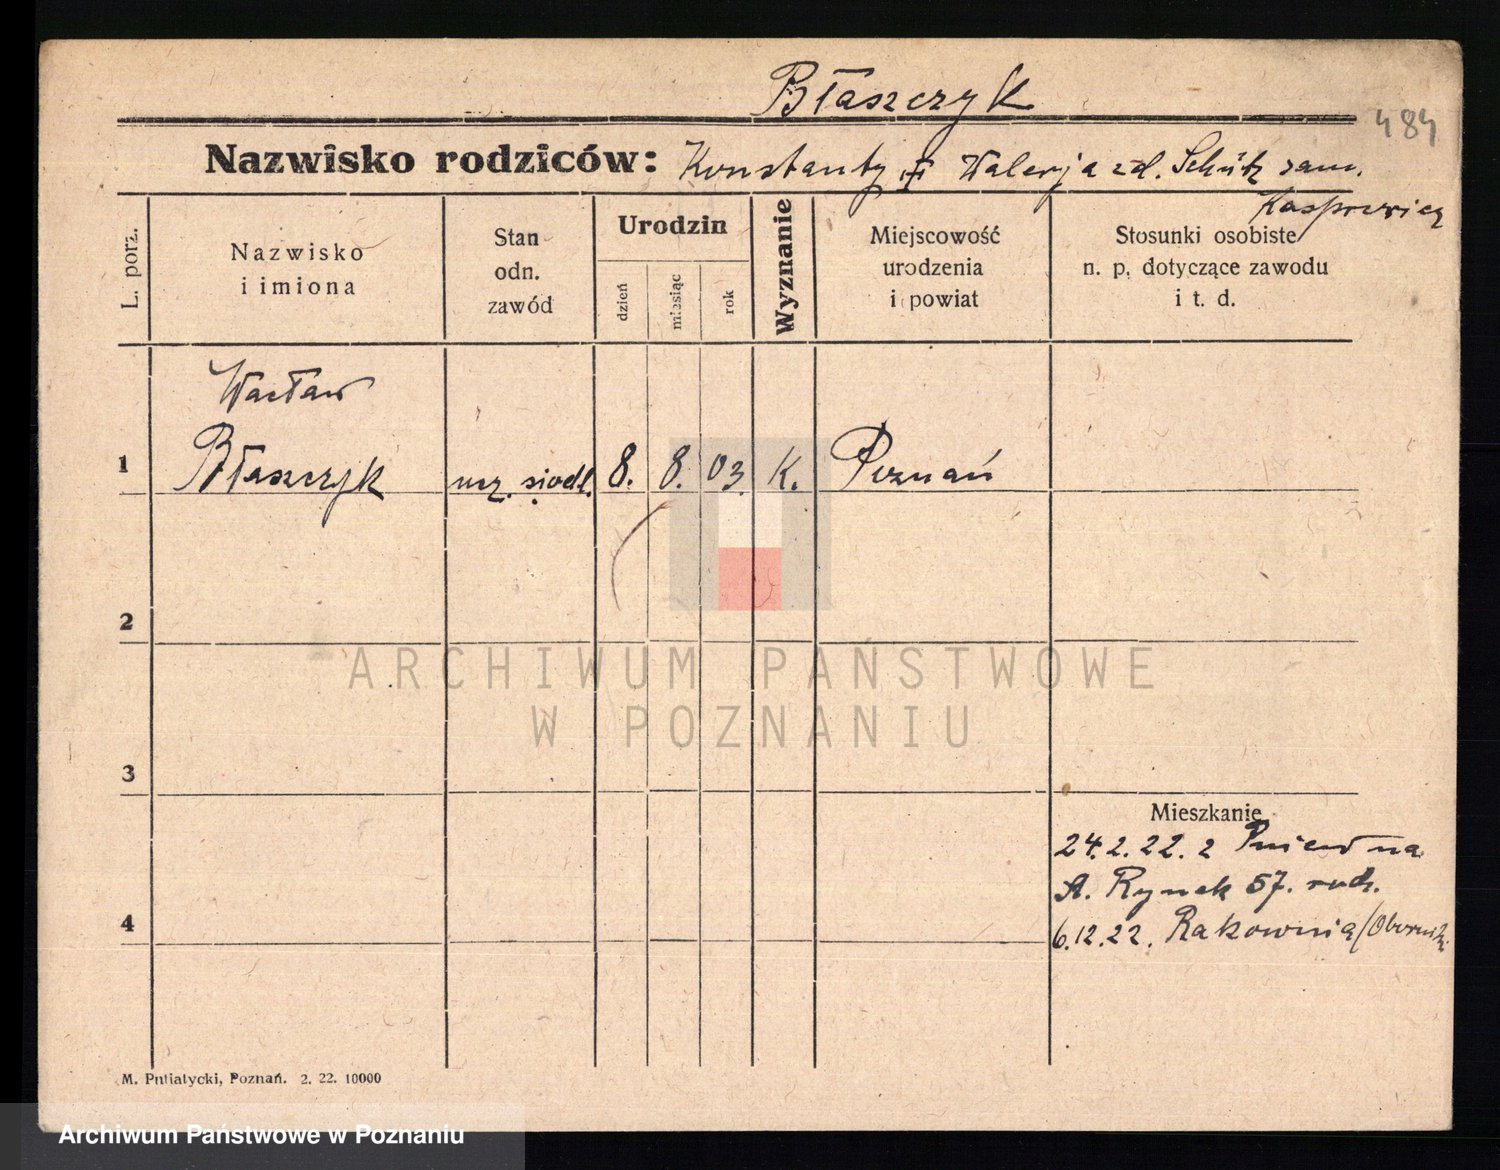 Błaszczyk
484
Nazwisko rodziców: Konstanty i Walerja zd. Schütz zam.
Kasprowicz
L. porz.
Nazwisko
i imiona
Stan
odn.
zawód
Urodzin
dzień
miesiąc
rok
Wyznanie
Miejscowość
urodzenia
i powiat
Stosunki osobiste
n. p. dotyczące zawodu
i t. d.
Wacław
1 Błaszczyk ucz. siodl. 8. 8. 03. K. Poznań
2
ARCHIWUM PAŃSTWOWE
W POZNANIU
3
Mieszkanie
24.2.22. z Pniew na
St. Rynek 57. rodz.
4
6.12.22. Rakownia/Oborniki
M. Putiatycki, Poznań. 2. 22. 10000
Archiwum Państwowe w Poznaniu